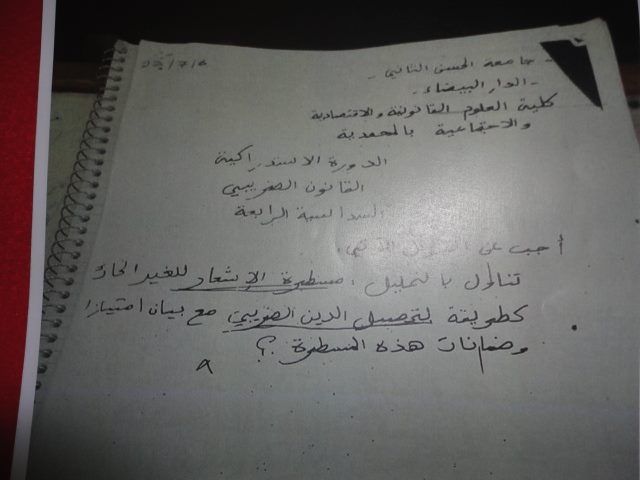 - جامعة الحسن الثاني -
- الدار البيضاء -
كلية العلوم القانونية والاقتصادية
والاجتماعية بالمحمدية
الدورة الاستدراكية
القانون الضريبي
السداسية الرابعة
أجب عن السؤال التالي:
تناول بالتحليل، مسطرة الإشعار للغير الحائز
كطريقة لتحصيل الدين الضريبي مع بيان امتيازا
وضمانات هذه المسطرة ؟